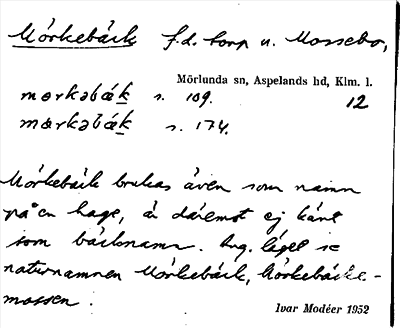 Mörkebäck f.d. torp u. Mossebo,
Mörlunda sn, Aspelands hd, Klm. l.
mərkəbäk s. 109. 12
mərkəbäk s. 174.
Mörkebäck brukas även som namn
på en hage, är däremot ej känt
som bäcknamn. Ang. läget se
naturnamnen Mörkebäck, Mörkebäcks-
mossen.
Ivar Modéer 1952